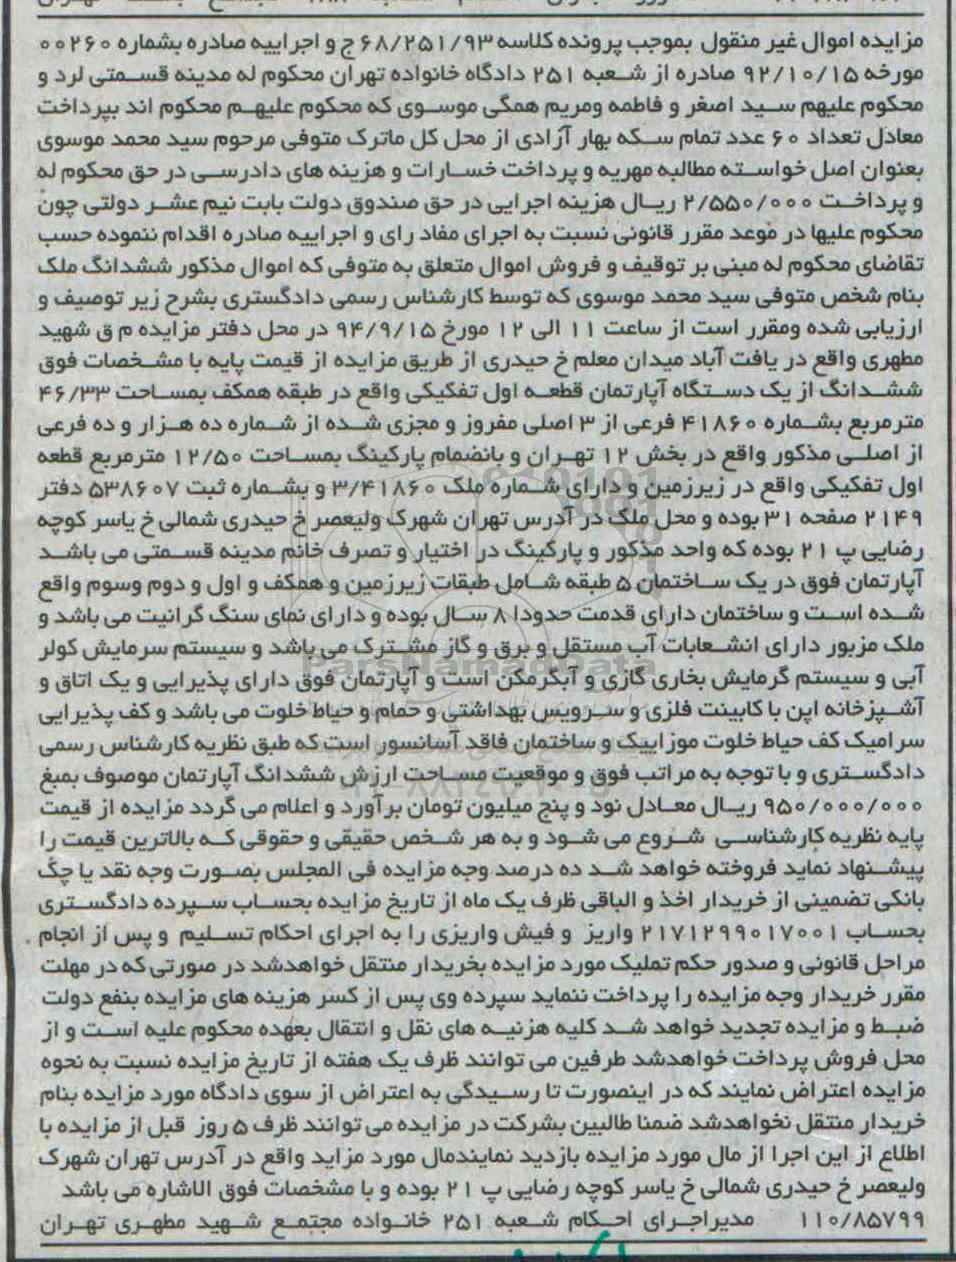 مزایده اموال غیر منقول بموجب پرونده کلاسه ۶۸/۲۵۱/۹۳ ج و اجراییه صادره بشماره ۰۰۲۶۰
مورخه ۹۲/۱۰/۱۵ صادره از شعبه ۲۵۱ دادگاه خانواده تهران محکوم له مدینه قسمتی لرد و
محکوم علیهم سید اصغر و فاطمه ومریم همگی موسوی که محکوم علیهم محکوم اند بپرداخت
معادل تعداد ۶۰ عدد تمام سکه بهار آزادی از محل کل ماترک متوفی مرحوم سید محمد موسوی
بعنوان اصل خواسته مطالبه مهریه و پرداخت خسارات و هزینه های دادرسی در حق محکوم له
و پرداخت ۲/۵۵۰/۰۰۰ ریال هزینه اجرایی در حق صندوق دولت بابت نیم عشر دولتی چون
محکوم علیها در موعد مقرر قانونی نسبت به اجرای مفاد رای و اجراییه صادره اقدام ننموده حسب
تقاضای محکوم له مبنی بر توقیف و فروش اموال متعلق به متوفی که اموال مذکور ششدانگ ملک
بنام شخص متوفی سید محمد موسوی که توسط کارشناس رسمی دادگستری بشرح زیر توصیف و
ارزیابی شده ومقرر است از ساعت ۱۱ الی ۱۲ مورخ ۹۴/۹/۱۵ در محل دفتر مزایده م ق شهید
مطهری واقع در یافت آباد میدان معلم خ حیدری از طریق مزایده از قیمت پایه با مشخصات فوق
ششدانگ از یک دستگاه آپارتمان قطعه اول تفکیکی واقع در طبقه همکف بمساحت ۴۶/۳۳
مترمربع بشماره ۴۱۸۶۰ فرعی از ۳ اصلی مفروز و مجزی شده از شماره ده هزار و ده فرعی
از اصلی مذکور واقع در بخش ۱۲ تهران و بانضمام پارکینگ بمساحت ۱۲/۵۰ مترمربع قطعه
اول تفکیکی واقع در زیرزمین و دارای شماره ملک ۳/۴۱۸۶۰ و بشماره ثبت ۵۳۸۶۰۷ دفتر
۲۱۴۹ صفحه ۳۱ بوده و محل ملک در آدرس تهران شهرک ولیعصر خ حیدری شمالی خ یاسر کوچه
رضایی پ ۲۱ بوده که واحد مذکور و پارکینگ در اختیار و تصرف خانم مدینه قسمتی می باشد
آپارتمان فوق در یک ساختمان ۵ طبقه شامل طبقات زیرزمین و همکف و اول و دوم وسوم واقع
شده است و ساختمان دارای قدمت حدودا ۸ سال بوده و دارای نمای سنگ گرانیت می باشد و
ملک مزبور دارای انشعابات آب مستقل و برق و گاز مشترک می باشد و سیستم سرمایش کولر
آبی و سیستم گرمایش بخاری گازی و آبگرمکن است و آپارتمان فوق دارای پذیرایی و یک اتاق و
آشپزخانه اپن با کابینت فلزی و سرویس بهداشتی و حمام و حیاط خلوت می باشد و کف پذیرایی
سرامیک کف حیاط خلوت موزاییک و ساختمان فاقد آسانسور است که طبق نظریه کارشناس رسمی
دادگستری و با توجه به مراتب فوق و موقعیت مساحت ارزش ششدانگ آپارتمان موصوف بمبغ
۹۵۰/۰۰۰/۰۰۰ ریال معادل نود و پنج میلیون تومان برآورد و اعلام می گردد مزایده از قیمت
پایه نظریه کارشناسی شروع می شود و به هر شخص حقیقی و حقوقی که بالاترین قیمت را
پیشنهاد نماید فروخته خواهد شد ده درصد وجه مزایده فی المجلس بصورت وجه نقد یا چک
بانکی تضمینی از خریدار اخذ و الباقی ظرف یک ماه از تاریخ مزایده بحساب سپرده دادگستری
بحساب ۲۱۷۱۲۹۹۰۱۷۰۰۱ واریز و فیش واریزی را به اجرای احکام تسلیم و پس از انجام
مراحل قانونی و صدور حکم تملیک مورد مزایده بخریدار منتقل خواهدشد در صورتی که در مهلت
مقرر خریدار وجه مزایده را پرداخت ننماید سپرده وی پس از کسر هزینه های مزایده بنفع دولت
ضبط و مزایده تجدید خواهد شد کلیه هزنیه های نقل و انتقال بعهده محکوم علیه است و از
محل فروش پرداخت خواهدشد طرفین می توانند ظرف یک هفته از تاریخ مزایده نسبت به نحوه
مزایده اعتراض نمایند که در اینصورت تا رسیدگی به اعتراض از سوی دادگاه مورد مزایده بنام
خریدار منتقل نخواهدشد ضمنا طالبین بشرکت در مزایده می توانند ظرف ۵ روز قبل از مزایده با
اطلاع از این اجرا از مال مورد مزایده بازدید نمایندمال مورد مزاید واقع در آدرس تهران شهرک
ولیعصر خ حیدری شمالی خ یاسر کوچه رضایی پ ۲۱ بوده و با مشخصات فوق الاشاره می باشد
۱۱۰/۸۵۷۹۹ مدیراجرای احکام شعبه ۲۵۱ خانواده مجتمع شهید مطهری تهران
ParsNamadData